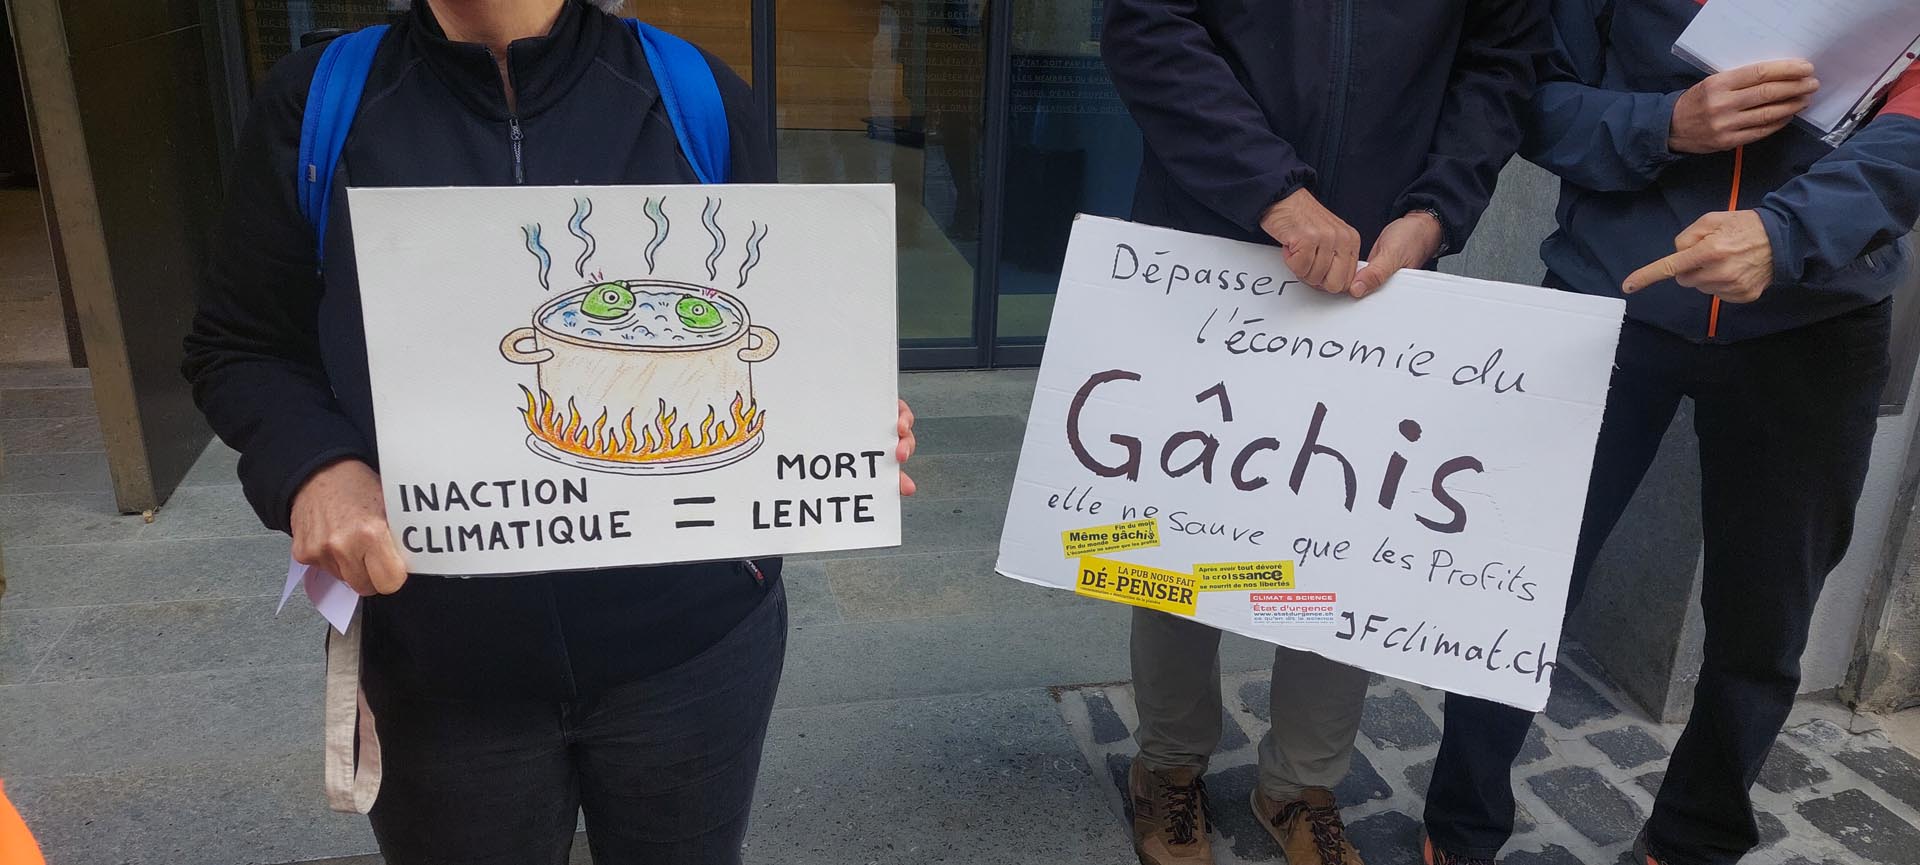 INACTION
CLIMATIQUE
=
MORT
LENTE
Dépasser
l'économie du
Gâchis
elle ne sauve que les Profits
Fin du mois
Même gâchis
Fin du monde
L'économie ne sauve que les profits
LA PUB NOUS FAIT
DÉ-PENSER
Après avoir tout dévoré
la croissance
se nourrit de nos libertés
CLIMAT & SCIENCE
État d'urgence
www.etatdurgence.ch
ce qu'en dit la science
JFclimat.ch